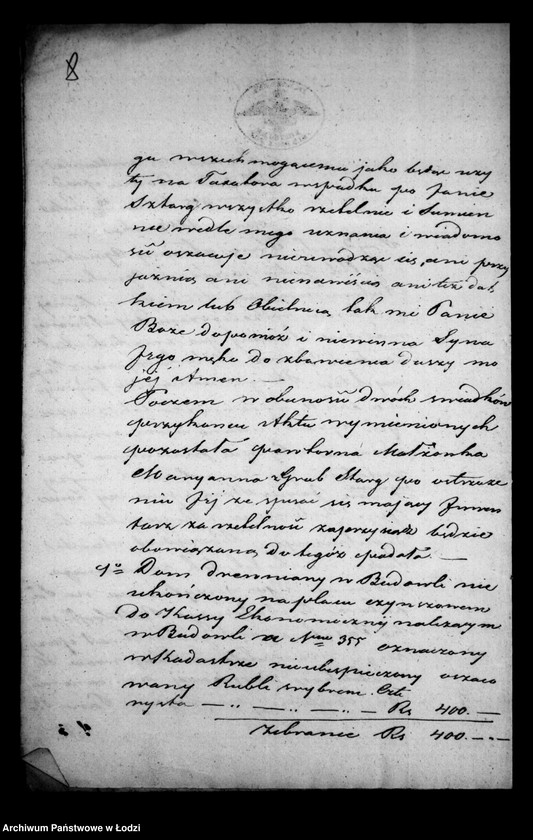 8
gu wszechmogącemu jako będąc uży
ty na Taxatora w spadku po Janie
Sztarg wszystko rzetelnie i Sumien
nie wedle mego uznania i wiadomo
ści oszacuję nieuwodząc się, ani przy
jaźnią ani nienawiścią ani też dat
kiem lub Obietnicą tak mi Panie
Boże dopomóż i niewinna Syna
Jego męka do zbawienia duszy mo
jej Amen. —
Poczem w obecności dwóch świadków
przy końcu Aktu wymienionych
pozostała powtórna Małżonka
Maryanna z Grab Starg po ostrzeże
niu Jej że spisać się mający Inwen
tarz za rzetelność zaprzysiądz będzie
obowiązaną do tegoż podała —
1o Dom drewniany w Budowli nie
ukończony na placu czynszowem
do Kassy Ekonomicznej należącym
w Budowli Nrem 355 oznaczony
w Kadastrze nieubespieczony oszaco
wany Rubli srebrem Czte
rysta — .. — .. — .. — Rs 400. —
Zebranie Rs 400. — . —
Archiwum Państwowe w Łodzi